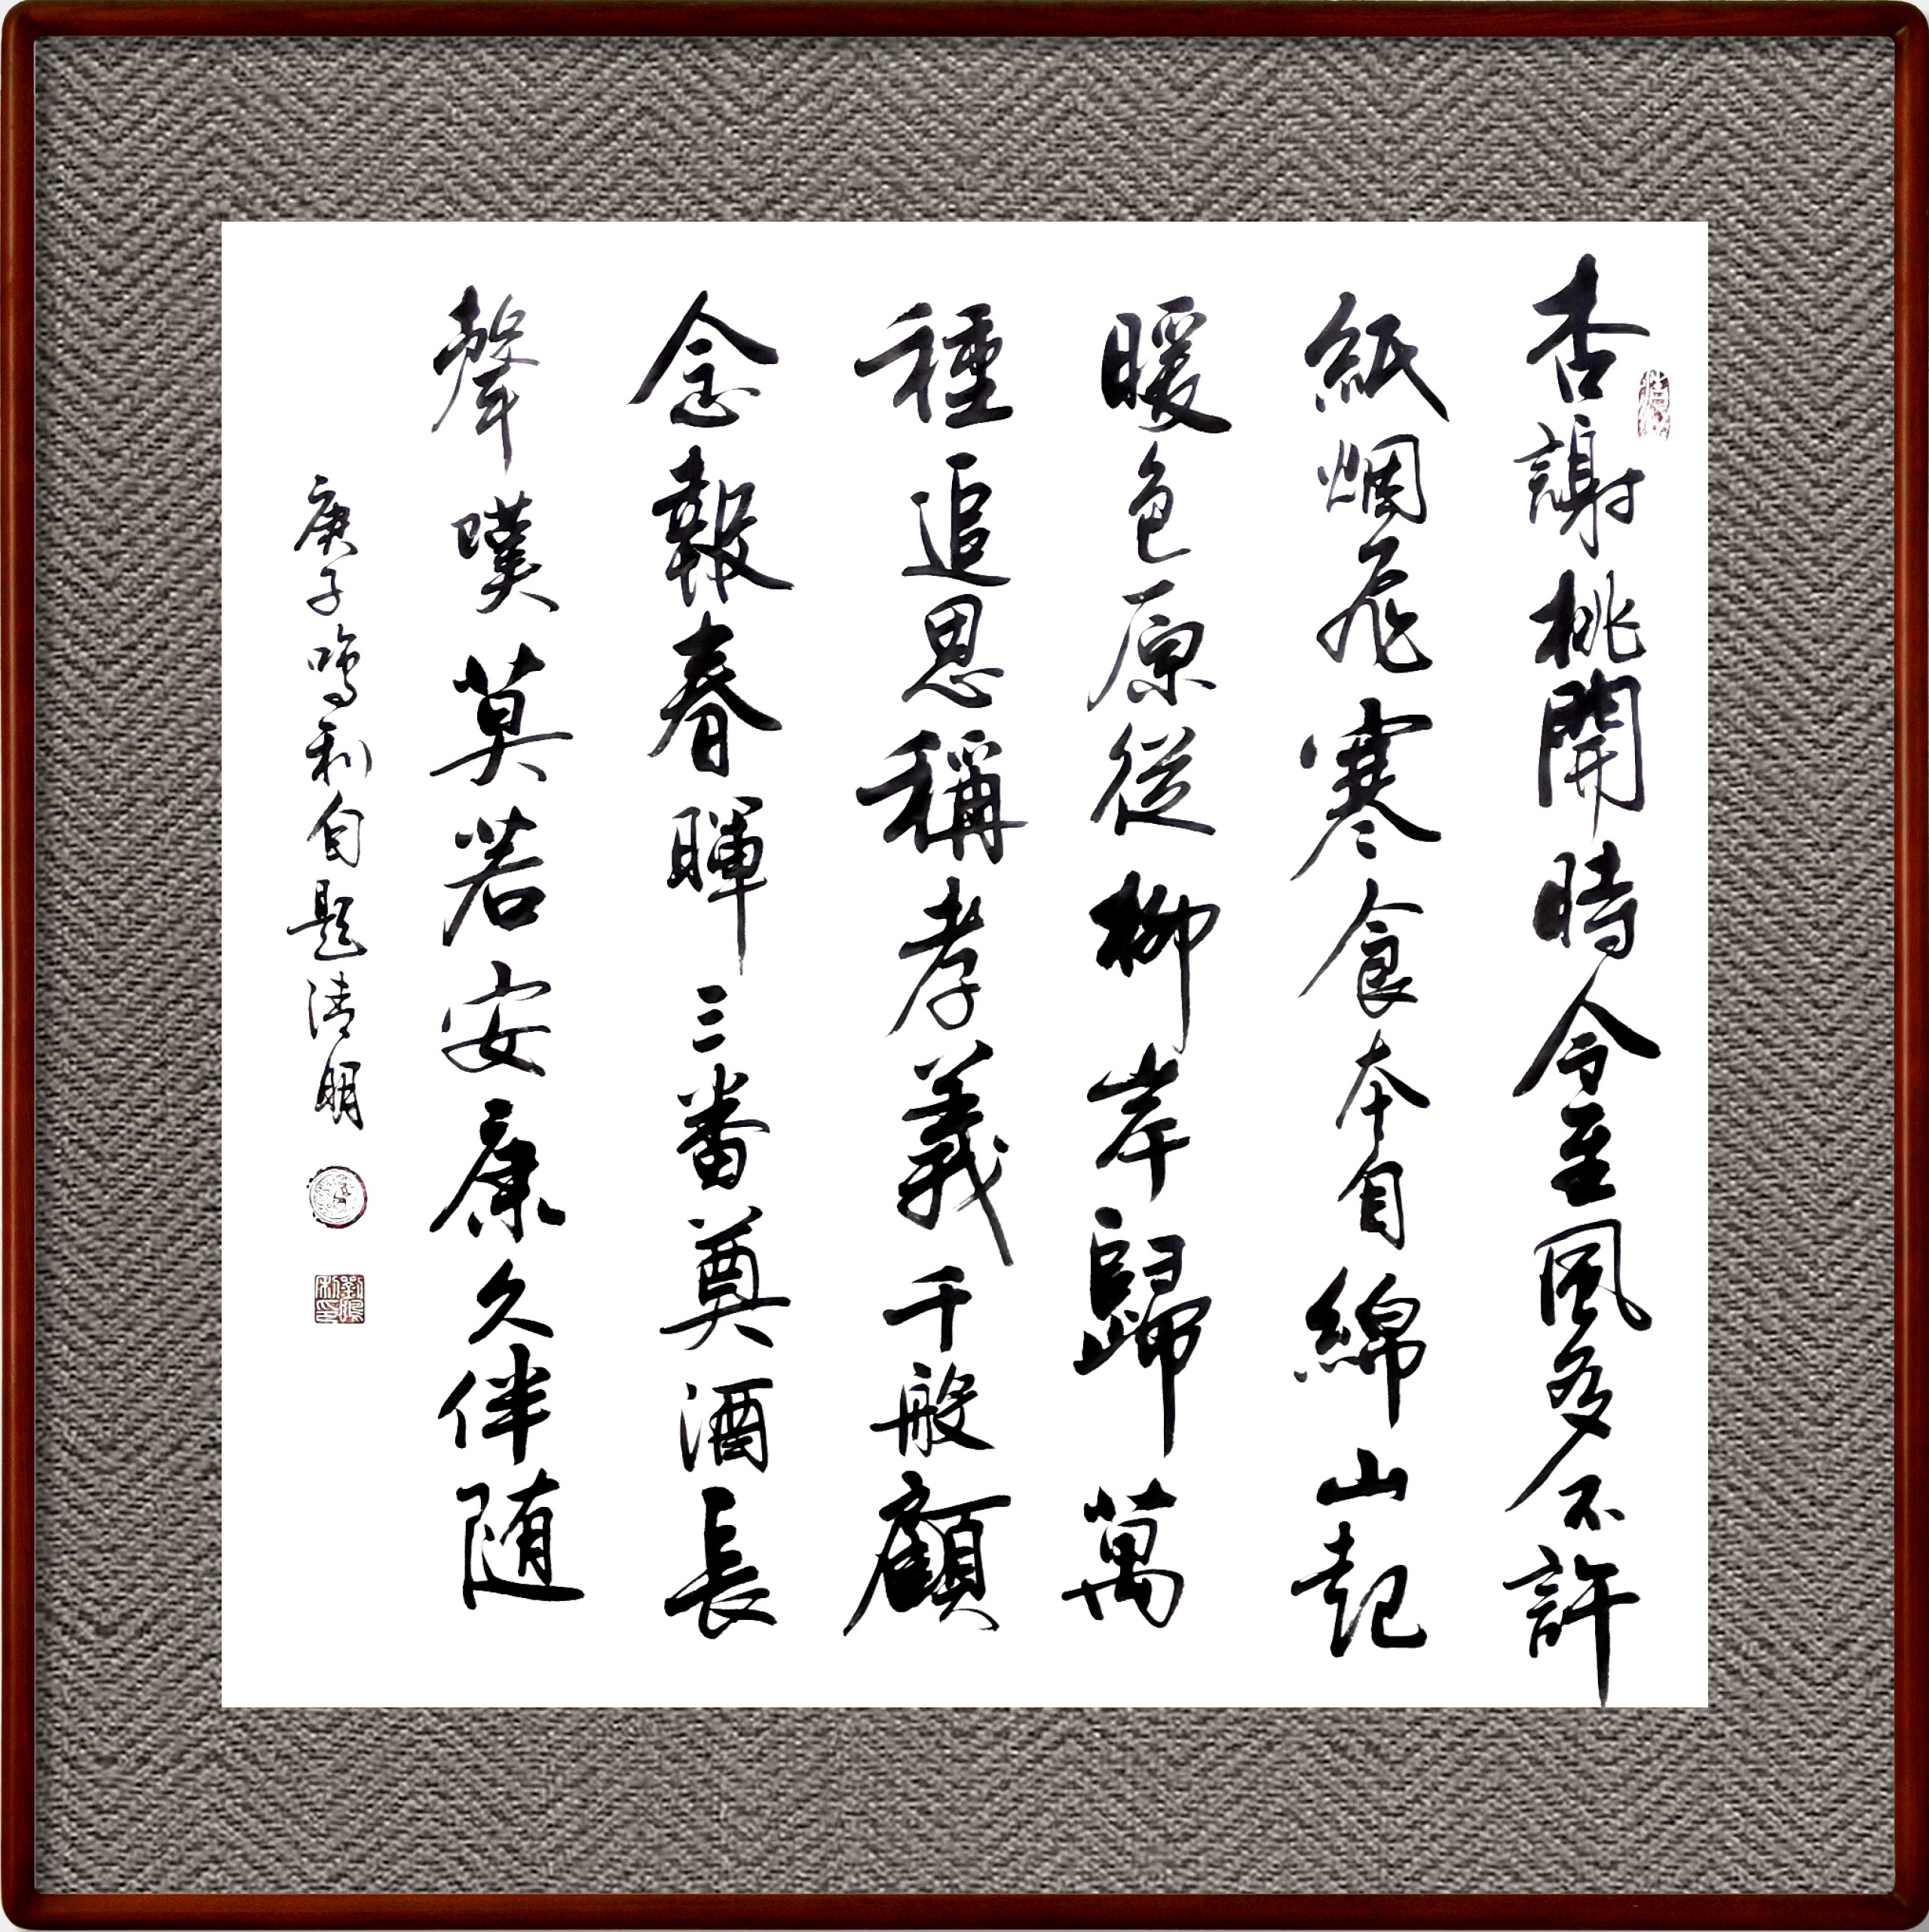 杏謝桃開時令至風多不許
紙烟飛寒食本自綿山起
暖色原從柳岸歸萬
種追思稱孝義千般顧
念報春暉三番奠酒長
聲嘆莫若安康久伴随
庚子鳴利自題清明